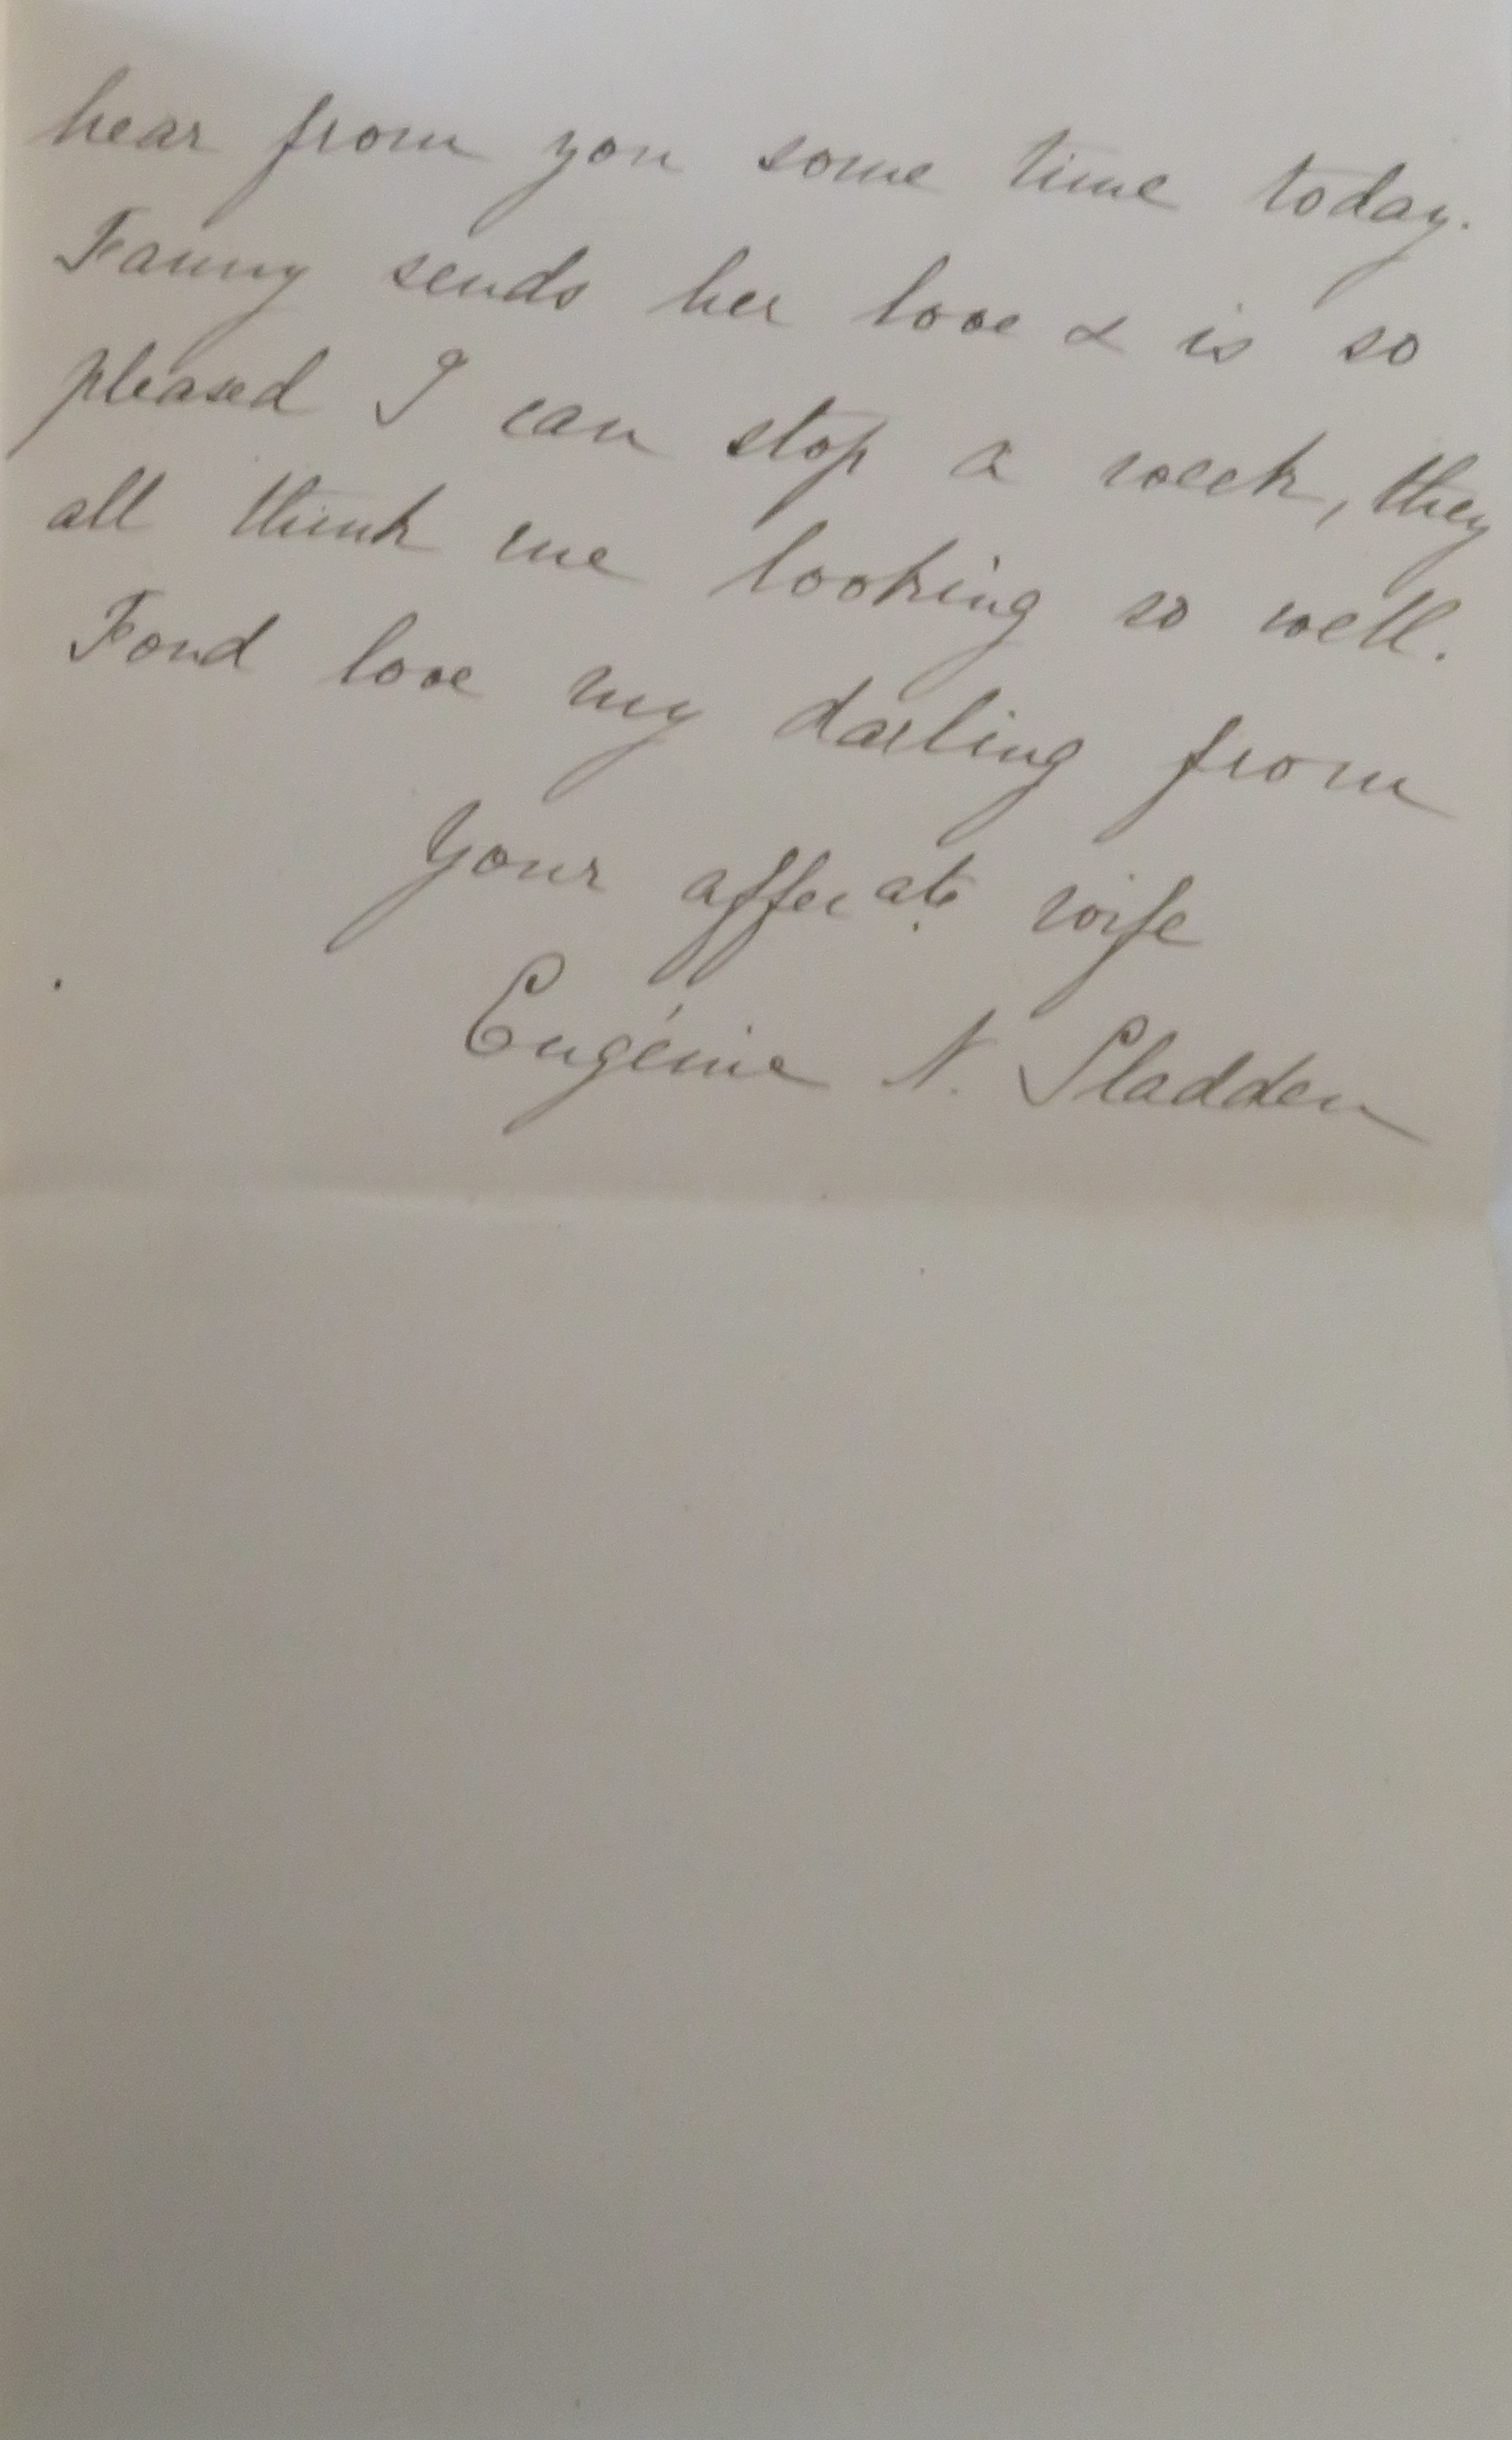 hear from you some time today.
Fanny sends her love & is so
pleased I can stop a week, they
all think me looking so well.
Fond love my darling from
Your affecate wife
Eugénie N. Sladden